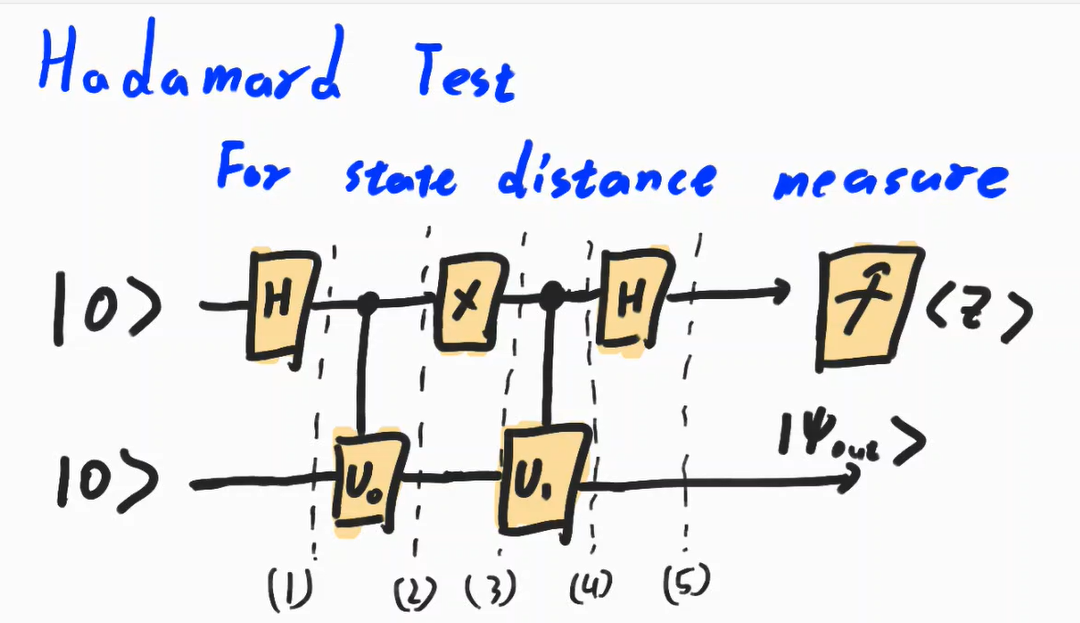 Hadamard Test
For state distance measure
|0> H X H <Z>
|Ψout>
|0> U₀ U₁
(1) (2) (3) (4) (5)